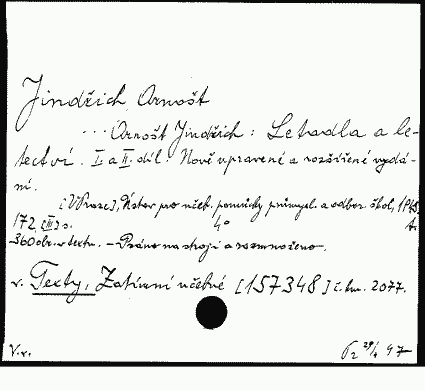 Jindřich Arnošt
... Arnošt Jindřich: Letadla a le-
tectví. I. a II. díl. Nově upravené a rozšířené vydá-
ní.
[V Praze], Ústav pro učeb. pomůcky průmysl. a odbor. škol, 1945,
172, [III] s. 4°
360 obr. v textu. – Psáno na stroji a rozmnoženo.
v. Texty, Zatímní učebné [157348] č. tm. 2077.
V.r. 29/4 47